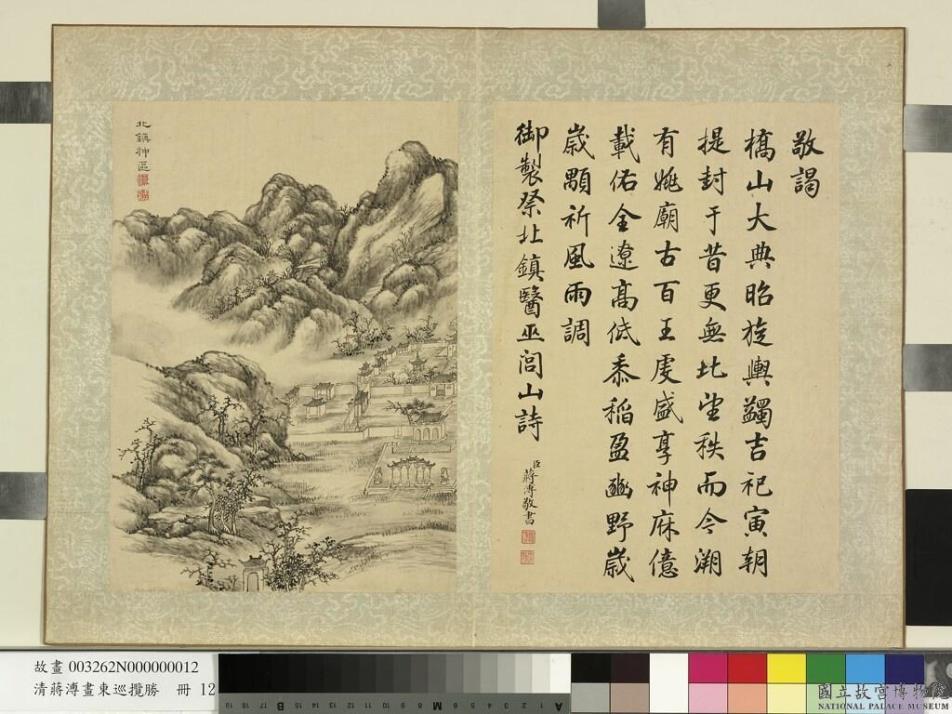 敬謁
橋山大典昭旋輿蠲吉祀寅朝
提封于昔更無比望秩而今溯
有姚廟古百王虔盛享神庥億
載佑全遼高低黍稻盈幽野歲
歲顒祈風雨調
御製祭北鎮醫巫閭山詩
臣蔣溥敬書
北鎮神區
故畫 003262N000000012
清蔣溥畫東巡攬勝 冊 12
國立故宮博物院
NATIONAL PALACE MUSEUM